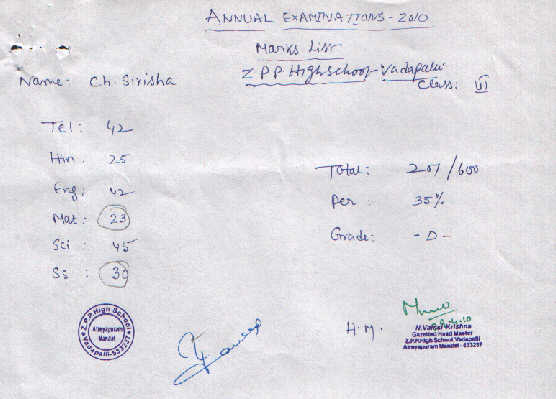 ANNUAL EXAMINATIONS - 2010
Marks List
Z.P.P. High School - Vadapalli
Name: Ch. Sirisha
Class: VI
Tel: 42
Hin: 25
Eng: 42
Mat: 23
Sci: 45
SS: 30
Total: 207/600
Per: 35%
Grade: - D -
Z.P.P. High School
Atreyapuram
Mandal
Vadapalli-533237
H.M.
Gazetted Head Master
Z.P.P. High School Vadapalli
Atreyapuram Mandal - 533237